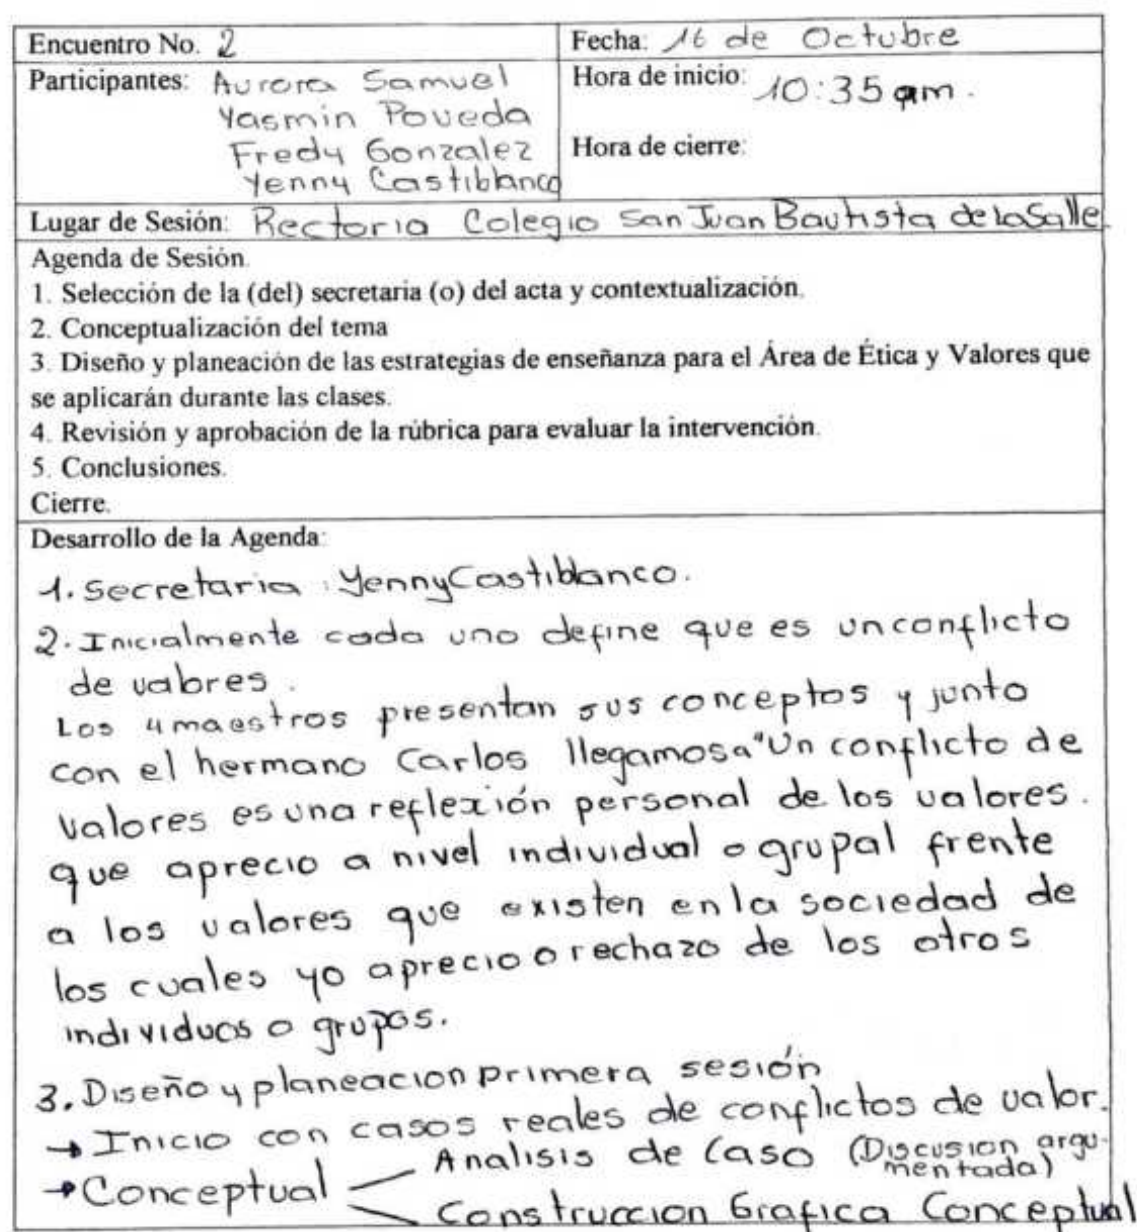 Encuentro No. 2
Fecha: 16 de Octubre
Participantes: Aurora Samuel
Yasmin Poveda
Fredy Gonzalez
Yenny Castiblanco
Hora de inicio: 10:35 am.
Hora de cierre:
Lugar de Sesión: Rectoria Colegio San Juan Bautista de la Salle.
Agenda de Sesión.
1. Selección de la (del) secretaria (o) del acta y contextualización.
2. Conceptualización del tema
3. Diseño y planeación de las estrategias de enseñanza para el Área de Ética y Valores que
se aplicarán durante las clases.
4. Revisión y aprobación de la rúbrica para evaluar la intervención.
5. Conclusiones.
Cierre.
Desarrollo de la Agenda:
1. Secretaria : Yenny Castiblanco.
2. Inicialmente cada uno define que es un conflicto
de valores.
Los 4 maestros presentan sus conceptos y junto
con el hermano Carlos llegamos a "Un conflicto de
valores es una reflexión personal de los valores.
que aprecio a nivel individual o grupal frente
a los valores que existen en la sociedad de
los cuales yo aprecio o rechazo de los otros
individuos o grupos.
3. Diseño y planeacion primera sesión
→ Inicio con casos reales de conflictos de valor.
→ Conceptual
Analisis de Caso (Discusion argu-
mentada)
Construccion Grafica Conceptual